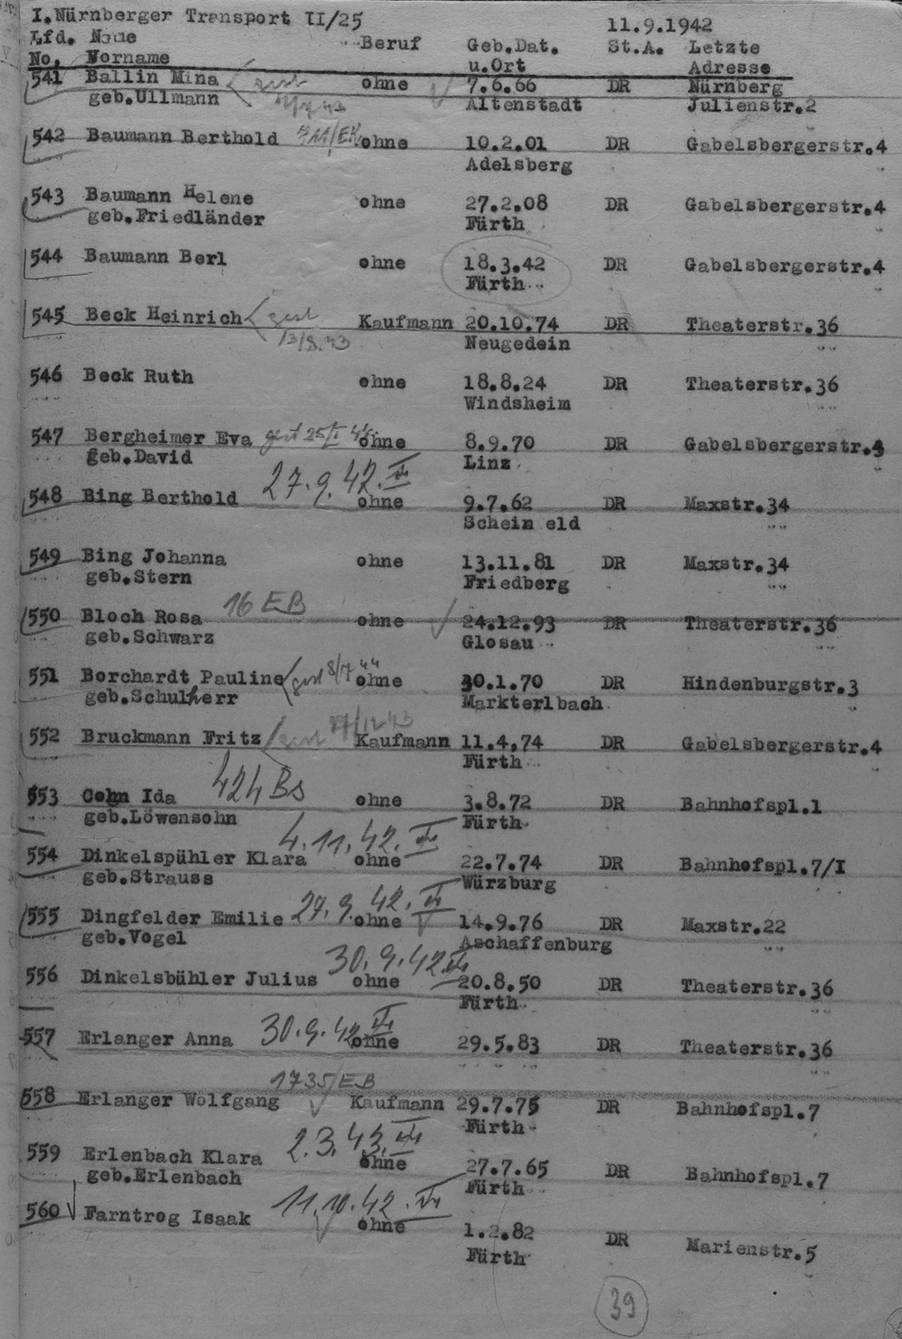 I.Nürnberger Transport II/25 11.9.1942
Lfd. Name Beruf Geb.Dat. St.A. Letzte
No. Vorname u.Ort Adresse
541 Ballin Mina gest ohne 7.6.66 DR Nürnberg
geb.Ullmann Altenstadt Julienstr.2
542 Baumann Berthold ohne 10.2.01 DR Gabelsbergerstr.4
Adelsberg
543 Baumann Helene ohne 27.2.08 DR Gabelsbergerstr.4
geb.Friedländer Fürth
544 Baumann Berl ohne 18.3.42 DR Gabelsbergerstr.4
Fürth
545 Beck Heinrich gest Kaufmann 20.10.74 DR Theaterstr.36
13/8.43 Neugedein
546 Beck Ruth ohne 18.8.24 DR Theaterstr.36
Windsheim
547 Bergheimer Eva gest ohne 8.9.70 DR Gabelsbergerstr.4
geb.David Linz
27.9.42.
548 Bing Berthold ohne 9.7.62 DR Maxstr.34
Schein eld
549 Bing Johanna ohne 13.11.81 DR Maxstr.34
geb.Stern Friedberg
550 Bloch Rosa 16 EB ohne 24.12.93 DR Theaterstr.36
geb.Schwarz Glosau
551 Borchardt Pauline gest 8/7 44 ohne 30.1.70 DR Hindenburgstr.3
geb.Schulherr Markterlbach
552 Bruckmann Fritz gest Kaufmann 11.4.74 DR Gabelsbergerstr.4
Fürth
553 Cohn Ida 424 Bs ohne 3.8.72 DR Bahnhofspl.1
geb.Löwensohn Fürth
4.11.42.
554 Dinkelspühler Klara ohne 22.7.74 DR Bahnhofspl.7/I
geb.Strauss Würzburg
555 Dingfelder Emilie 27.9.42. ohne 14.9.76 DR Maxstr.22
geb.Vogel Aschaffenburg
556 Dinkelsbühler Julius 30.9.42 ohne 20.8.50 DR Theaterstr.36
Fürth
557 Erlanger Anna 30.9.42 ohne 29.5.83 DR Theaterstr.36
1735/EB
558 Erlanger Wolfgang Kaufmann 29.7.75 DR Bahnhofspl.7
Fürth
559 Erlenbach Klara 2.3.43. ohne 27.7.65 DR Bahnhofspl.7
geb.Erlenbach Fürth
560 Farntrog Isaak 11.10.42. ohne 1.2.82 DR Marienstr.5
Fürth
39